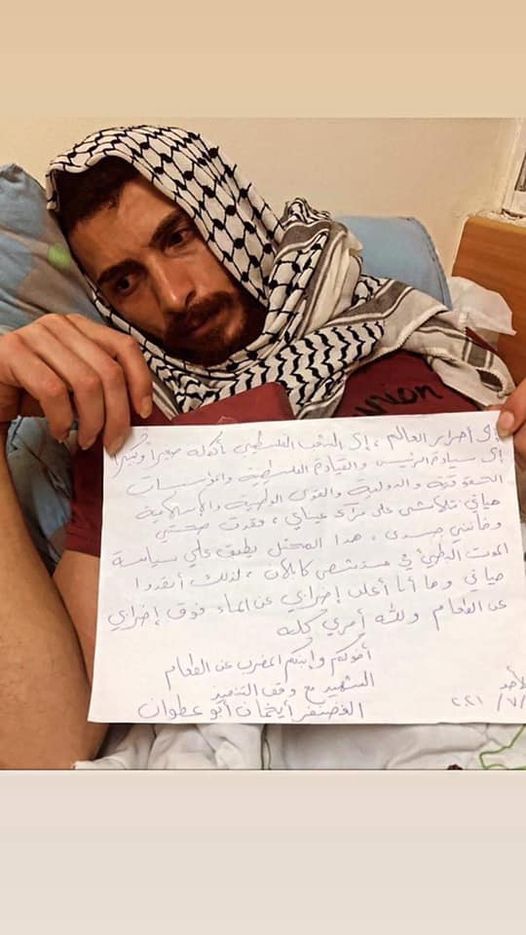 union
إلى أحرار العالم ، إلى الشعب الفلسطيني بأكمله صغيراً وكبيراً
إلى سيادة الرئيس والقيادة الفلسطينية والمؤسسات
الحقوقية والدولية والقوى الوطنية والإسلامية
حياتي تتلاشى على مرأى عيناي ، وفقدت صحتي
وخانني جسدي ، هذا المحتل يطبق علي سياسة
الموت البطيئ في مستشفى كابلان ، لذلك أنقذوا
حياتي وها أنا أعلن إضرابي عن الماء فوق إضرابي
عن الطعام ولله أمري كله
أخوكم وإبنكم المضرب عن الطعام
الشهيد مع وقف التنفيذ
الغضنفر أيخمان أبو عطوان
الأحد
/٧/ ٢٠٢١